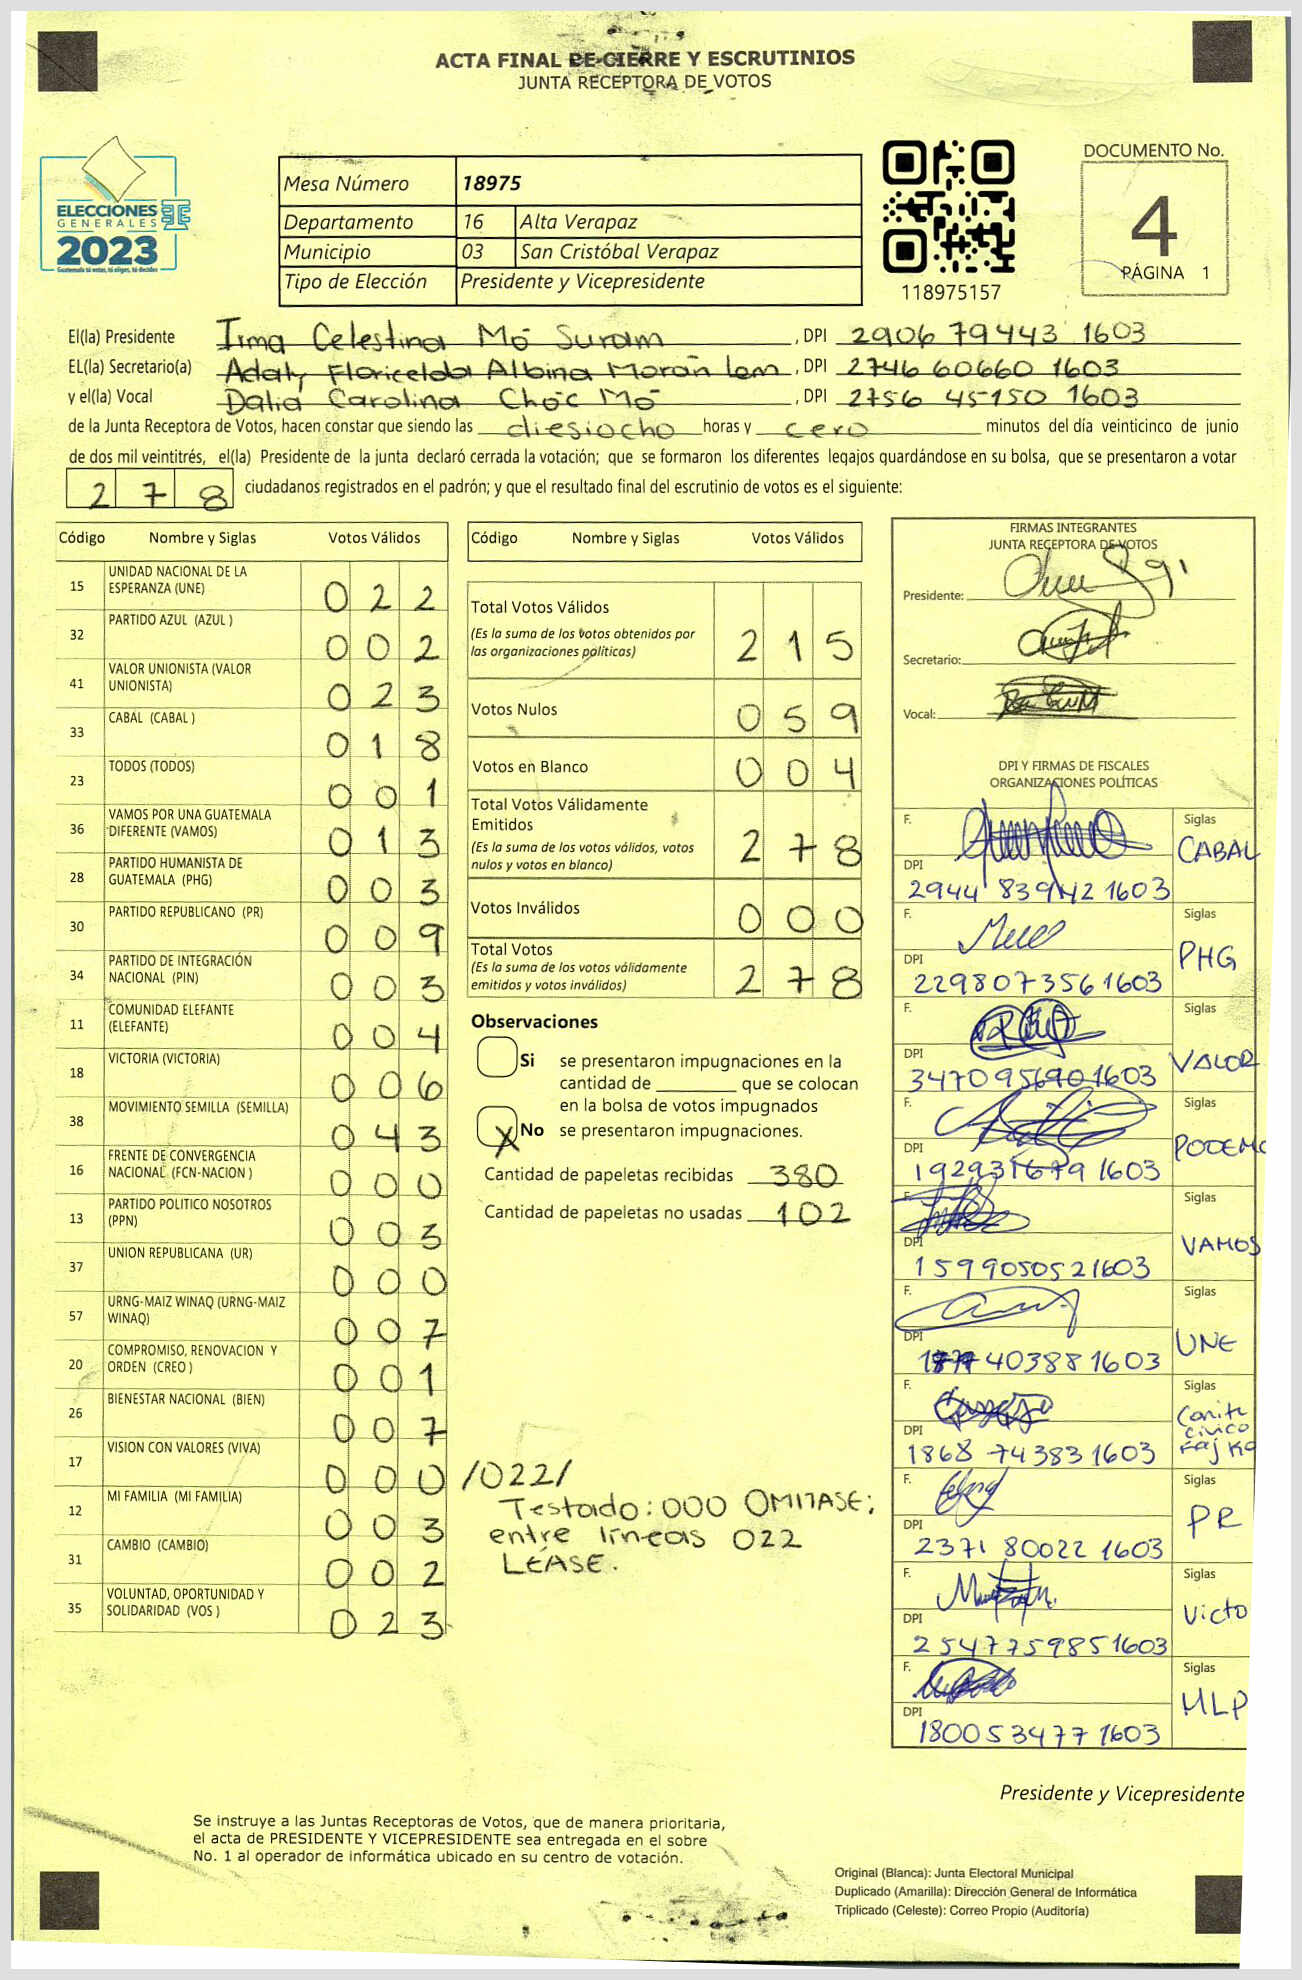 ACTA FINAL DE CIERRE Y ESCRUTINIOS
JUNTA RECEPTORA DE VOTOS
ELECCIONES
GENERALES
2023
Guatemala tú votas, tú eliges, tú decides
Mesa Número 18975
Departamento 16 Alta Verapaz
Municipio 03 San Cristóbal Verapaz
Tipo de Elección Presidente y Vicepresidente
118975157
DOCUMENTO No.
4
PÁGINA 1
El(la) Presidente Irma Celestina Mó Suram, DPI 2906 79443 1603
EL(la) Secretario(a) Adaly Floricelda Albina Morán Lem, DPI 2746 60660 1603
y el(la) Vocal Dalia Carolina Choc Mó, DPI 2756 45150 1603
de la Junta Receptora de Votos, hacen constar que siendo las diesiocho horas y cero minutos del día veinticinco de junio
de dos mil veintitrés, el(la) Presidente de la junta declaró cerrada la votación; que se formaron los diferentes legajos guardándose en su bolsa, que se presentaron a votar
278 ciudadanos registrados en el padrón; y que el resultado final del escrutinio de votos es el siguiente:
Código Nombre y Siglas Votos Válidos
15 UNIDAD NACIONAL DE LA ESPERANZA (UNE) 022
32 PARTIDO AZUL (AZUL ) 002
41 VALOR UNIONISTA (VALOR UNIONISTA) 023
33 CABAL (CABAL ) 018
23 TODOS (TODOS) 001
36 VAMOS POR UNA GUATEMALA DIFERENTE (VAMOS) 013
28 PARTIDO HUMANISTA DE GUATEMALA (PHG) 003
30 PARTIDO REPUBLICANO (PR) 009
34 PARTIDO DE INTEGRACIÓN NACIONAL (PIN) 003
11 COMUNIDAD ELEFANTE (ELEFANTE) 004
18 VICTORIA (VICTORIA) 006
38 MOVIMIENTO SEMILLA (SEMILLA) 043
16 FRENTE DE CONVERGENCIA NACIONAL (FCN-NACION ) 000
13 PARTIDO POLITICO NOSOTROS (PPN) 003
37 UNION REPUBLICANA (UR) 000
57 URNG-MAIZ WINAQ (URNG-MAIZ WINAQ) 007
20 COMPROMISO, RENOVACION Y ORDEN (CREO ) 001
26 BIENESTAR NACIONAL (BIEN) 007
17 VISION CON VALORES (VIVA) 000 /022/
12 MI FAMILIA (MI FAMILIA) 003
31 CAMBIO (CAMBIO) 002
35 VOLUNTAD, OPORTUNIDAD Y SOLIDARIDAD (VOS ) 023
Testado: 000 OMITASE;
entre líneas 022
LÉASE.
Código Nombre y Siglas Votos Válidos
Total Votos Válidos
(Es la suma de los votos obtenidos por
las organizaciones políticas) 215
Votos Nulos 059
Votos en Blanco 004
Total Votos Válidamente
Emitidos
(Es la suma de los votos válidos, votos
nulos y votos en blanco) 278
Votos Inválidos 000
Total Votos
(Es la suma de los votos válidamente
emitidos y votos inválidos) 278
Observaciones
Si se presentaron impugnaciones en la
cantidad de ________ que se colocan
en la bolsa de votos impugnados
X No se presentaron impugnaciones.
Cantidad de papeletas recibidas 380
Cantidad de papeletas no usadas 102
FIRMAS INTEGRANTES
JUNTA RECEPTORA DE VOTOS
Presidente:
Secretario:
Vocal:
DPI Y FIRMAS DE FISCALES
ORGANIZACIONES POLÍTICAS
F. Siglas CABAL
DPI 2944 83942 1603
F. Siglas PHG
DPI 2298073561603
F. Siglas VALOR
DPI 3470956901603
F. Siglas PODEMO
DPI 1929316791603
F. Siglas VAMOS
DPI 1599050521603
F. Siglas UNE
DPI 403881603
F. Siglas Comite civico
DPI 1868 74383 1603
F. Siglas PR
DPI 2371 80022 1603
F. Siglas Victo
DPI 2547759851603
F. Siglas MLP
DPI 1800534771603
Presidente y Vicepresidente
Se instruye a las Juntas Receptoras de Votos, que de manera prioritaria,
el acta de PRESIDENTE Y VICEPRESIDENTE sea entregada en el sobre
No. 1 al operador de informática ubicado en su centro de votación.
Original (Blanca): Junta Electoral Municipal
Duplicado (Amarilla): Dirección General de Informática
Triplicado (Celeste): Correo Propio (Auditoría)